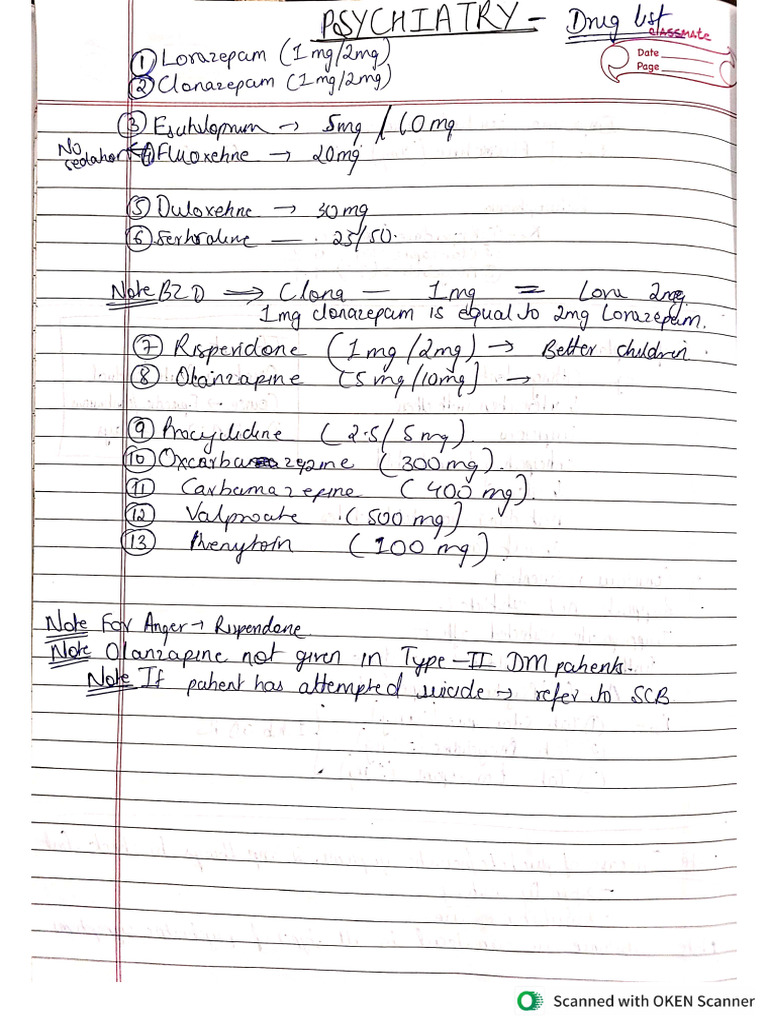 PSYCHIATRY - Drug list
classmate
Date
Page
① Lorazepam (1mg/2mg)
② Clonazepam (1mg/2mg)
③ Escitalopram → 5mg / 10mg
No sedation ← ④ Fluoxetine → 20mg
⑤ Duloxetine → 30mg
⑥ Sertraline — 25/50.
Note BZD → Clona — 1mg = Lora 2mg.
1mg clonazepam is equal to 2mg Lorazepam.
⑦ Risperidone (1mg/2mg) → Better children
⑧ Olanzapine (5mg/10mg] →
⑨ Procyclidine (2.5/5mg).
⑩ Oxcarbazepine (300mg).
⑪ Carbamazepine (400mg).
⑫ Valproate (500mg]
⑬ Phenytoin (100mg).
Note For Anger → Risperidone
Note Olanzapine not given in Type-II DM patients.
Note If patient has attempted suicide → refer to SCB
Scanned with OKEN Scanner